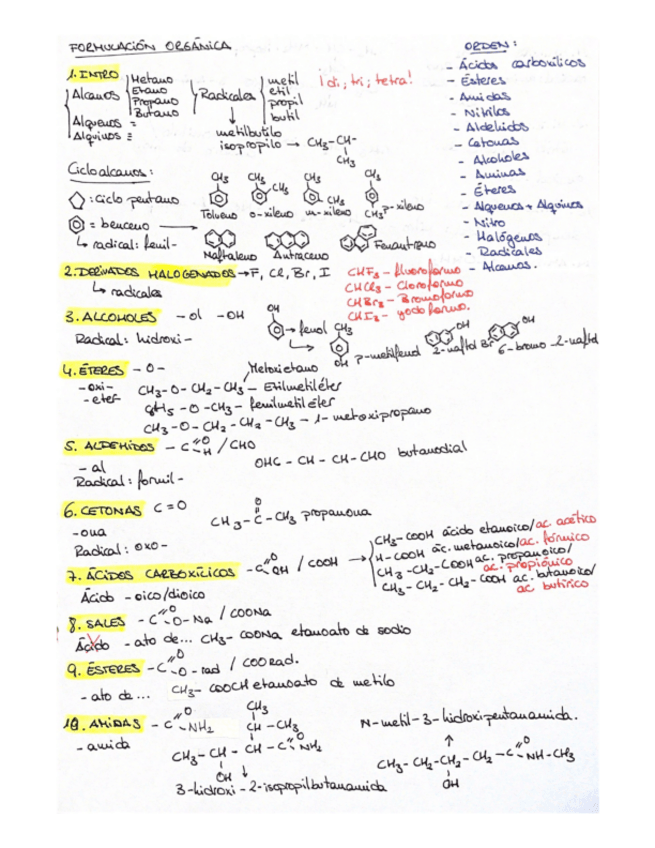 FORMULACIÓN ORGÁNICA
ORDEN:
- Ácidos carboxílicos
- Ésteres
- Amidas
- Nitrilos
- Aldehidos
- Cetonas
- Alcoholes
- Aminas
- Éteres
- Alquenos + Alquinos
- Nitro
- Halógenos
- Radicales
- Alcanos.
1. INTRO
Alcanos
Metano
Etano
Propano
Butano
Radicales
metil
etil
propil
butil
¡di, tri, tetra!
Alquenos =
Alquinos ≡
metilbutilo
isopropilo → CH3-CH-
CH3
Cicloalcanos:
CH3 CH3 CH3 CH3
CH3
CH3
CH3
: ciclo pentano
Tolueno o-xileno m-xileno p-xileno
= benceno
↳ radical: fenil-
Naftaleno Antraceno Fenantreno
2. DERIVADOS HALOGENADOS → F, Cl, Br, I
↳ radicales
CHF3 - fluoroformo
CHCl3 - Cloroformo
CHBr3 - Bromoformo
CHI3 - yodoformo.
3. ALCOHOLES - ol -OH
Radical: hidroxi-
OH
→ fenol
CH3
OH
p-metilfenol
OH
2-naftol
Br
OH
6-bromo-2-naftol
4. ÉTERES - O -
- oxi-
- eter
Metoxietano
CH3-O-CH2-CH3 - Etilmetiléter
C6H5-O-CH3 - fenilmetiléter
CH3-O-CH2-CH2-CH3 - 1-metoxipropano
5. ALDEHIDOS - C=O-H / CHO
- al
Radical: formil-
OHC - CH - CH-CHO butanodial
6. CETONAS C=O
-ona
Radical: oxo-
O
CH3-C-CH3 propanona
7. ÁCIDOS CARBOXÍLICOS - C=O OH / COOH →
Ácido -oico/dioico
CH3-COOH ácido etanoico/ac. acético
H-COOH ác. metanoico/ac. fórmico
CH3-CH2-COOH ac. propanoico/
ac. propiónico
CH3-CH2-CH2-COOH ac. butanoico/
ac. butírico
8. SALES - C=O O-Na / COONa
Ácido -ato de... CH3-COONa etanoato de sodio
9. ÉSTERES - C=O O-rad / COOrad.
- ato de... CH3-COOCH etanoato de metilo
10. AMIDAS - C=O NH2
- amida
CH3
CH - CH3
CH3-CH - CH - C=O NH2
OH
3-hidroxi-2-isopropilbutanamida
N-metil-3-hidroxipentanamida.
CH3-CH2-CH2-CH2-C=O NH-CH3
OH